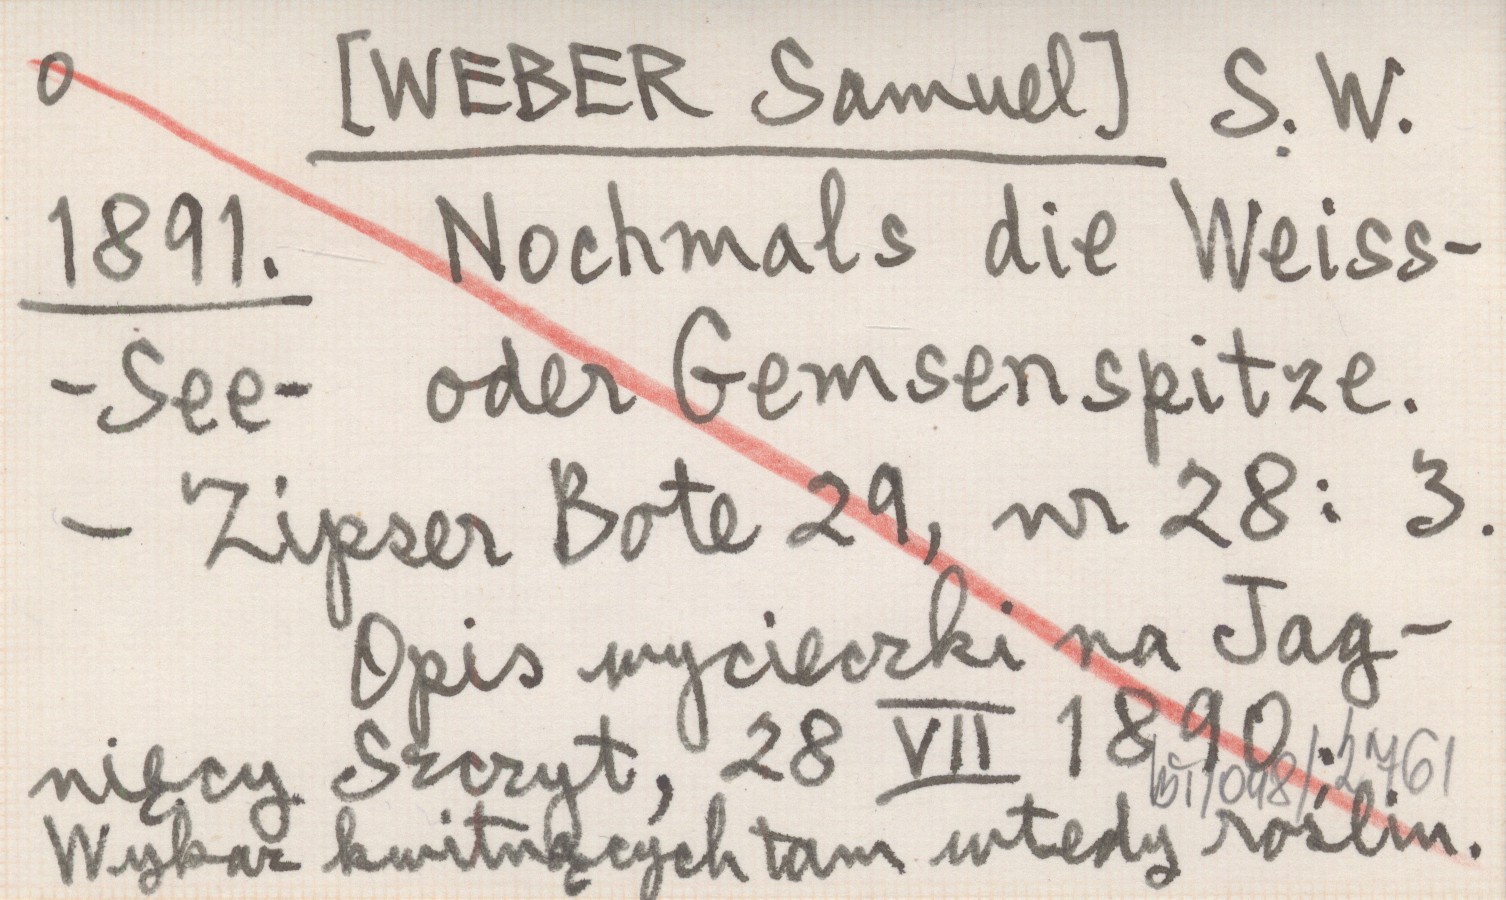 0 [WEBER Samuel] S. W.
1891. Nochmals die Weiss-
-See- oder Gemsenspitze.
- Zipser Bote 29, nr 28: 3.
Opis wycieczki na Jag-
nięcy Szczyt, 28 VII 1890.
Wykaz kwitnących tam wtedy roślin.